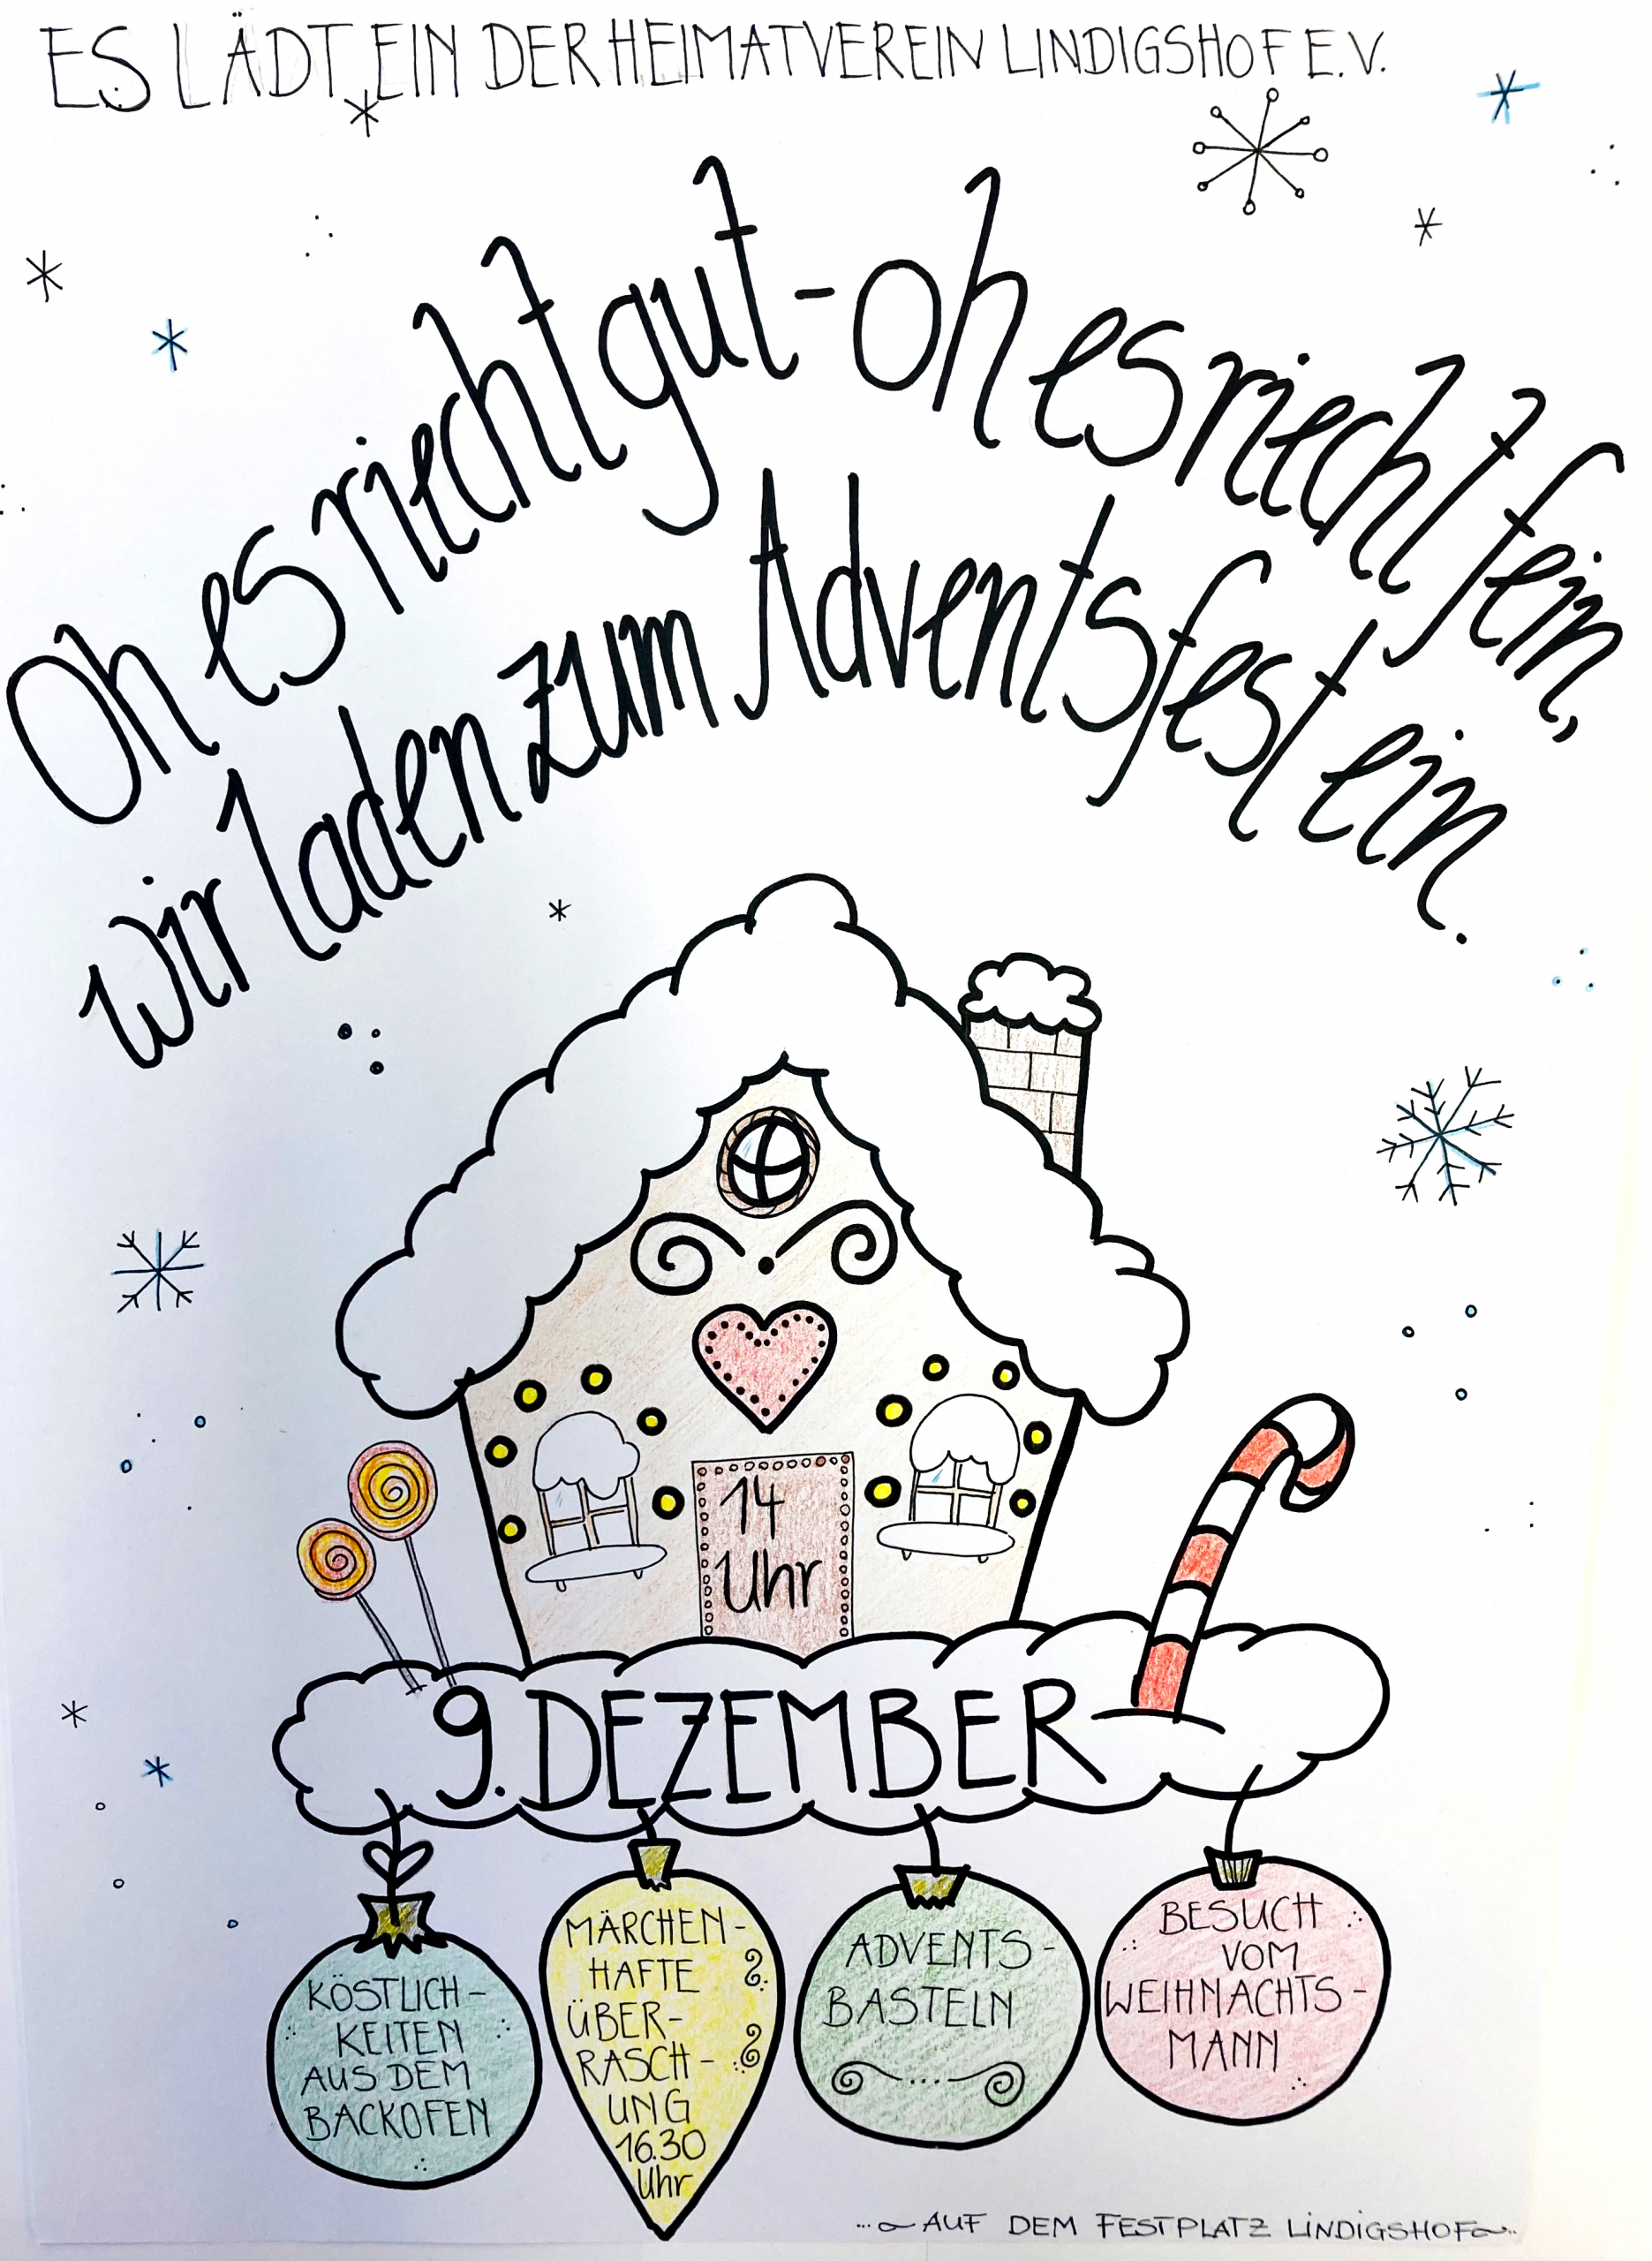 ES LÄDT EIN DER HEIMATVEREIN LINDIGSHOF E.V.
Oh es riecht gut - oh es riecht fein,
wir laden zum Adventsfest ein.
14
Uhr
9. DEZEMBER
KÖSTLICH-
KEITEN
AUS DEM
BACKOFEN
MÄRCHEN-
HAFTE
ÜBER-
RASCH-
UNG
16.30
Uhr
ADVENTS-
BASTELN
BESUCH
VOM
WEIHNACHTS-
MANN
...AUF DEM FESTPLATZ LINDIGSHOF...